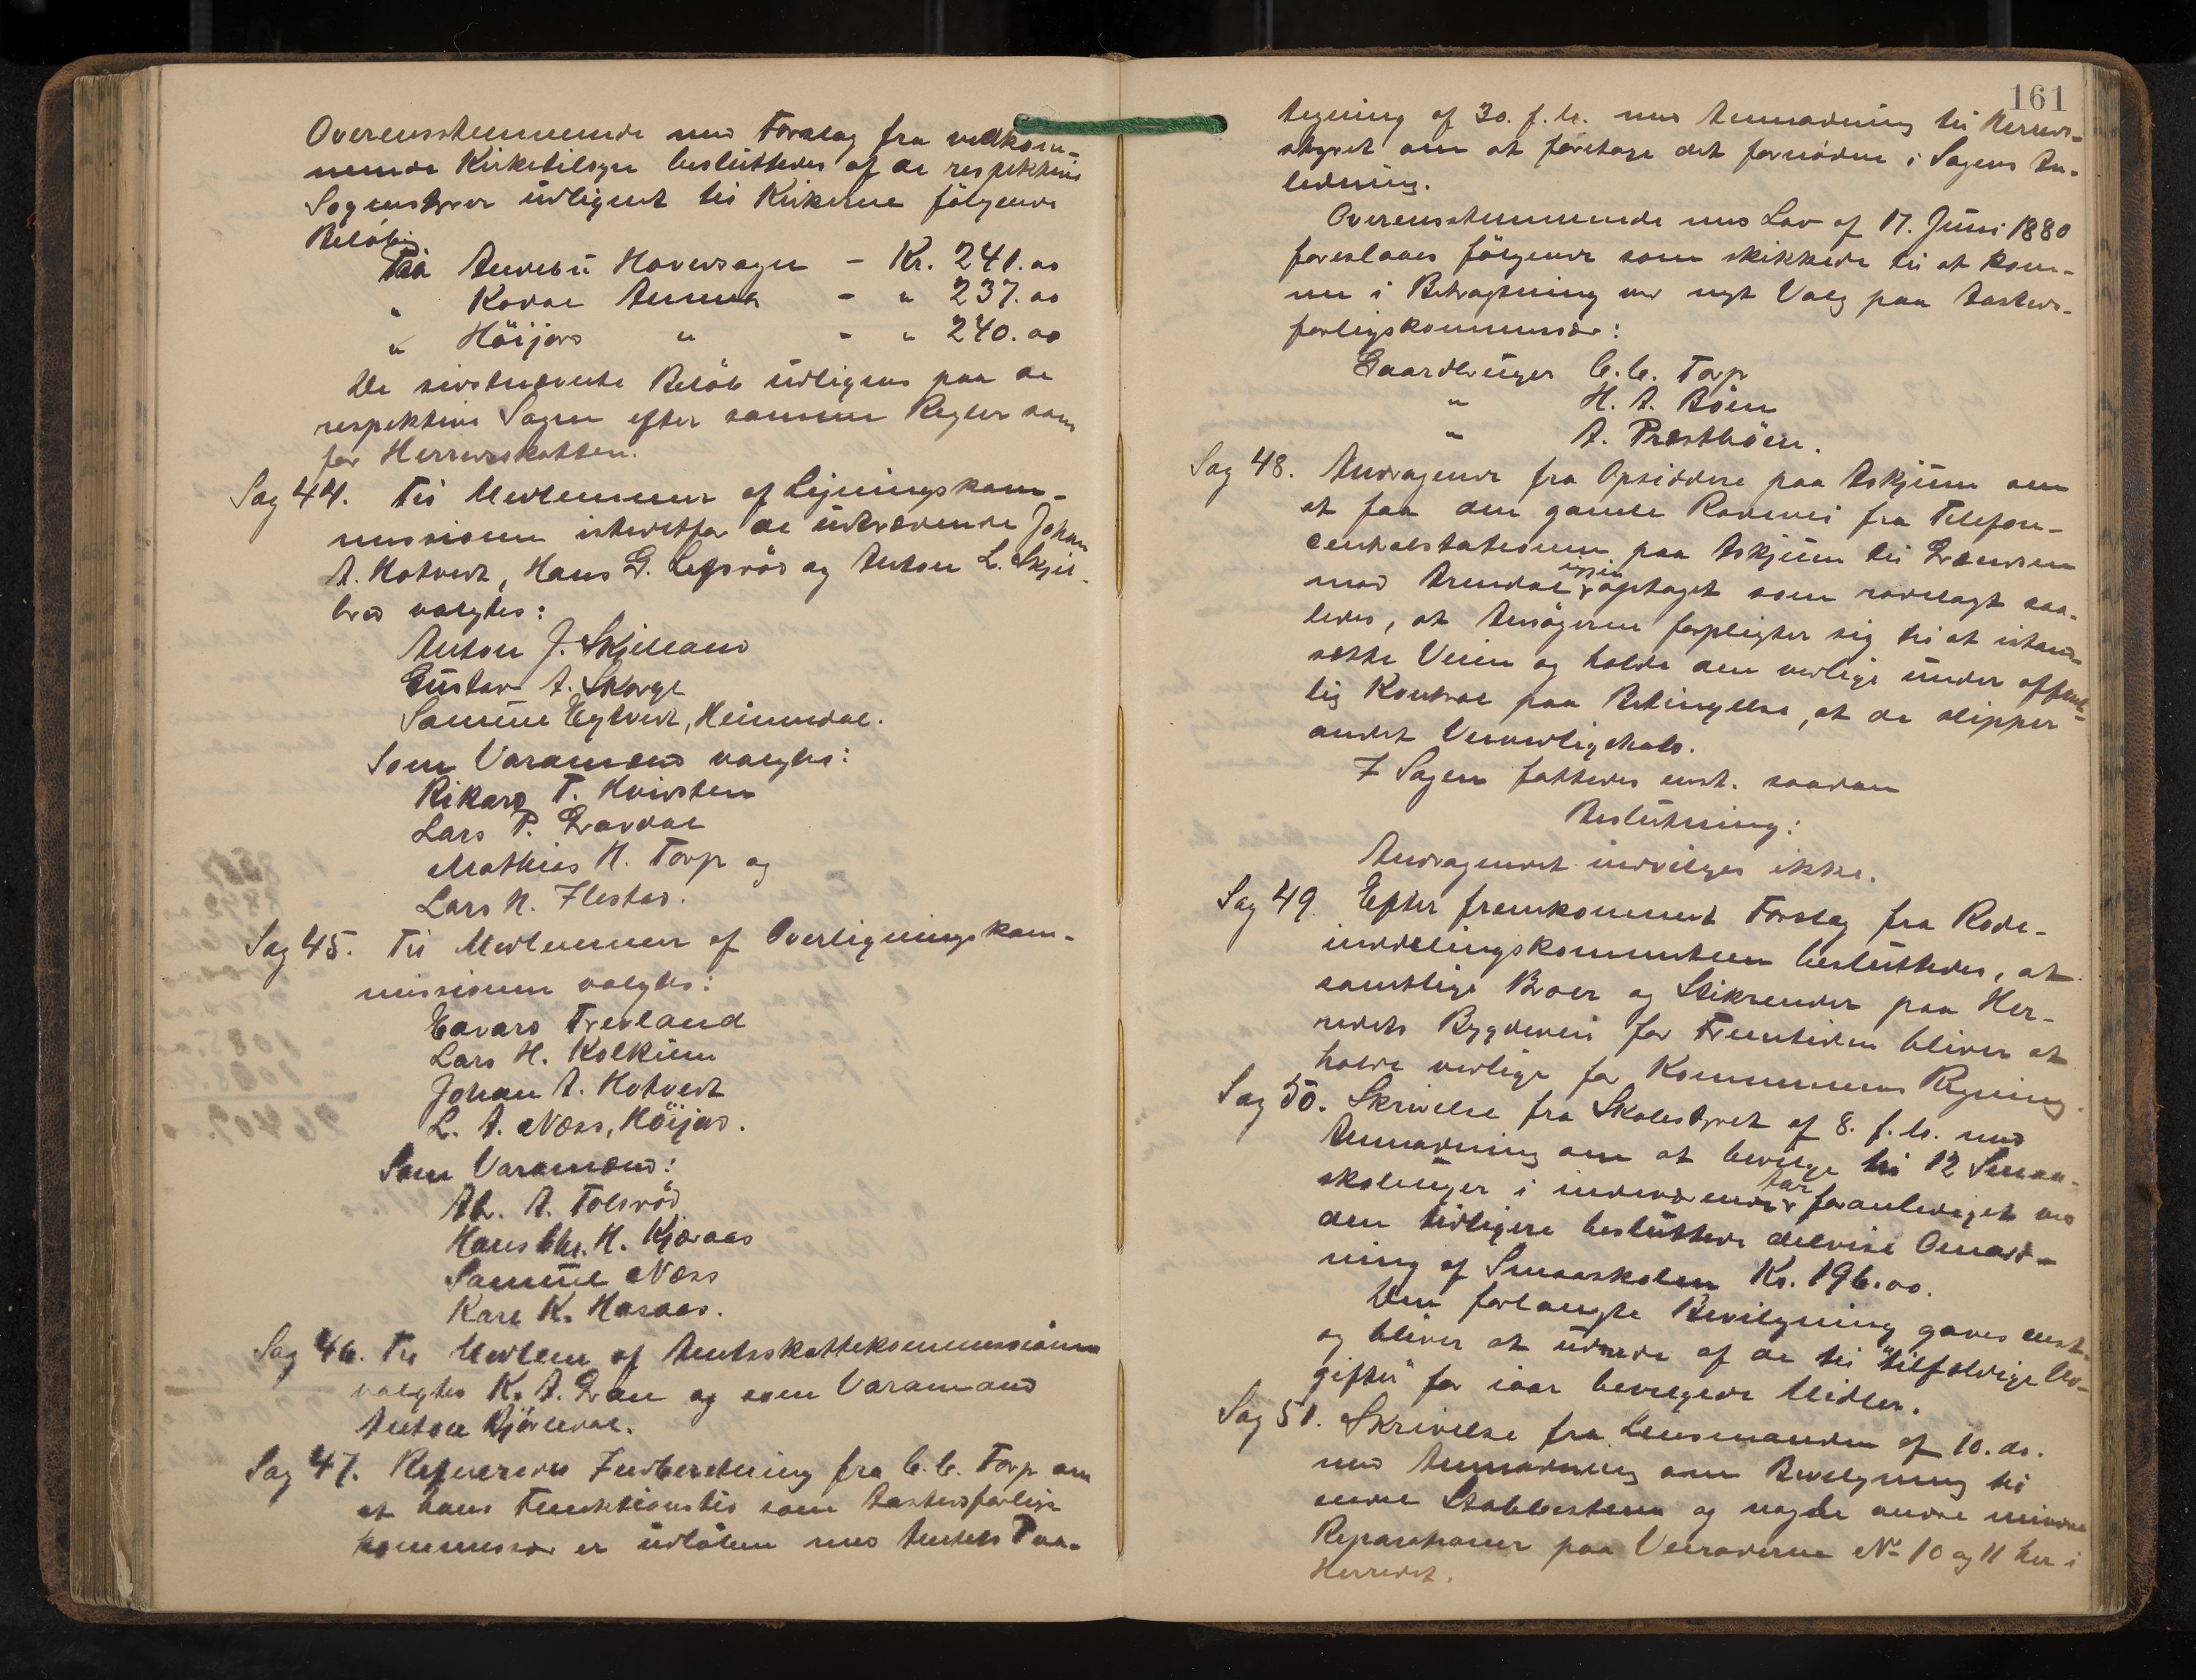 Overensstemmende med Forslag fra vedkom-
mende Kirketilsyn besluttedes af de respektive
Sognestyrer udlignet til Kirkerne følgende
Beløb:
Paa Andebu Hovedsogn - Kr. 241.00
" Kodal Annex - " 237.00
" Höijord " - " 240.00
De sidstnævnte Beløb udlignes paa de
respektive Sogne efter samme Regler som
for Herredsskatten.
Sag 44. Til Medlemmer af Ligningskom-
missionen istedetfor de udtrædende Johan
A. Hotvedt, Hans G. Lefsrød og Anton L. Skjel-
bred valgtes:
Anton J. Skjelland
Gustav A. Skorge
Samuel Eytvedt, Heimdal.
Som Varamænd valgtes:
Rikard T. Hvidsten
Lars P. Gravdal
Mathias H. Torp og
Lars N. Ilestad.
Sag 45. Til Medlemmer af Overligningskom-
missionen valgtes:
Edvard Trevland
Lars H. Kolkinn
Johan A. Hotvedt
L. A. Næss, Höijord.
Som Varamænd:
Ab. A. Tolsrød
Hans Chr. H. Kjæraas
Samuel Næss
Karl K. Hasaas.
Sag 46. Til Medlem af Amtsskattekommissionen
valgtes K. A. Gran og som Varamand
Anton Bjørndal.
Sag 47. Refereredes Indberetning fra C. C. Torp om
at hans Funktionstid som Aastedsforligs-
kommissær er udløben med Amtets Paa-
161
tegning af 30. f. M. med Anmodning til Herreds-
styret om at foretage det fornødne i Sagens An-
ledning.
Overensstemmende med Lov af 17. Juni 1880
foreslaaes følgende som skikkede til at kom-
me i Betragtning ved nyt Valg paa Aasteds-
forligskommissær:
Gaardbruger C. C. Torp
" H. A. Böen
" A. Præstbøen.
Sag 48. Andragende fra Opsiddere paa Askjem om
at faa den gamle Rodevei fra Telefon-
centralstationen paa Askjem til Grændsen
mod Arendal igjen optaget som rodelagt saa-
ledes, at Ansøgerne forpligter sig til at istand-
sætte Veien og holde den vedlige under offent-
lig Kontrol paa Betingelse, at de slipper
andet Veivedligehold.
I Sagen fattedes enst. saadan
Beslutning:
Andragendet indvilges ikke.
Sag 49. Efter fremkommet Forslag fra Rode-
inddelingskommiteen besluttedes, at
samtlige Broer og Stikrender paa Her-
redets Bygdeveie for Fremtiden bliver at
holde vedlige for Kommunens Regning.
Sag 50. Skrivelse fra Skolestyret af 8. f. M. med
Anmodning om at bevilge til 12 Smaa-
skoleuger i indeværende Aar foranlediget ved
den tidligere besluttede delvise Omord-
ning af Smaaskolen Kr. 196.00.
Den forlangte Bevilgning gaves enst.
og bliver at udrede af de til "tilfældige Ud-
gifter" for iaar bevilgede Midler.
Sag 51. Skrivelse fra Lensmanden af 10. ds.
med Anmodning om Bevilgning til
endel Stabbestene og nogle andre mindre
Reparationer paa Veiroderne No 10 og 11 her i
Herredet.